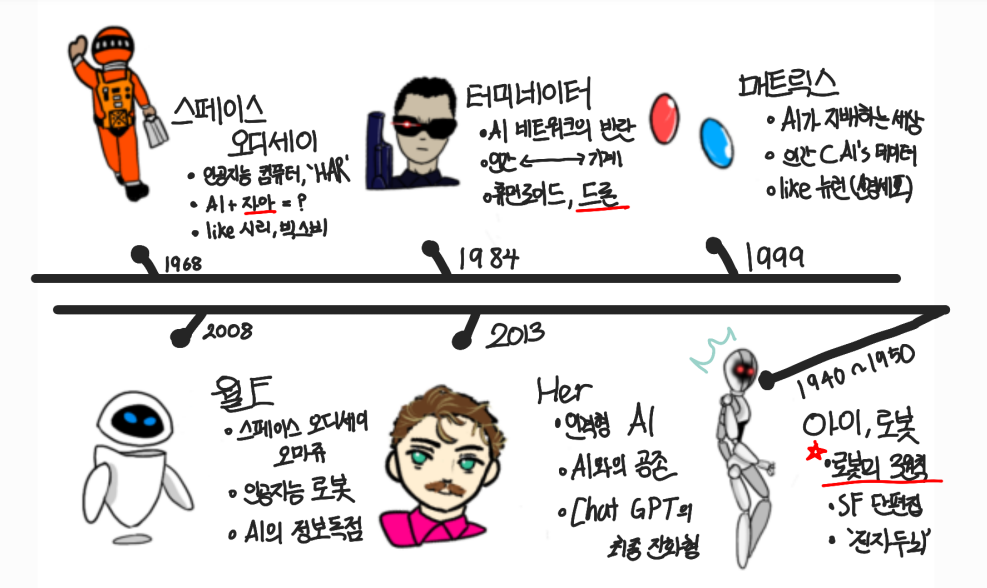 스페이스
오디세이
• 인공지능 컴퓨터, 'HAR'
• AI + 자아 = ?
• like 시리, 빅스비
1968
터미네이터
• AI 네트워크의 반란
• 인간 ↔ 기계
• 휴먼로이드, 드론
1984
매트릭스
• AI가 지배하는 세상
• 인간 ⊂ AI's 데이터
• like 뉴런(신경세포)
1999
2008
월E
• 스페이스 오디세이
오마쥬
• 인공지능 로봇
• AI의 정보독점
2013
Her
• 인격형 AI
• AI와의 공존
• Chat GPT의
최종 진화형
1940~1950
아이, 로봇
• 로봇의 3원칙
• SF 단편집
• '전자두뇌'